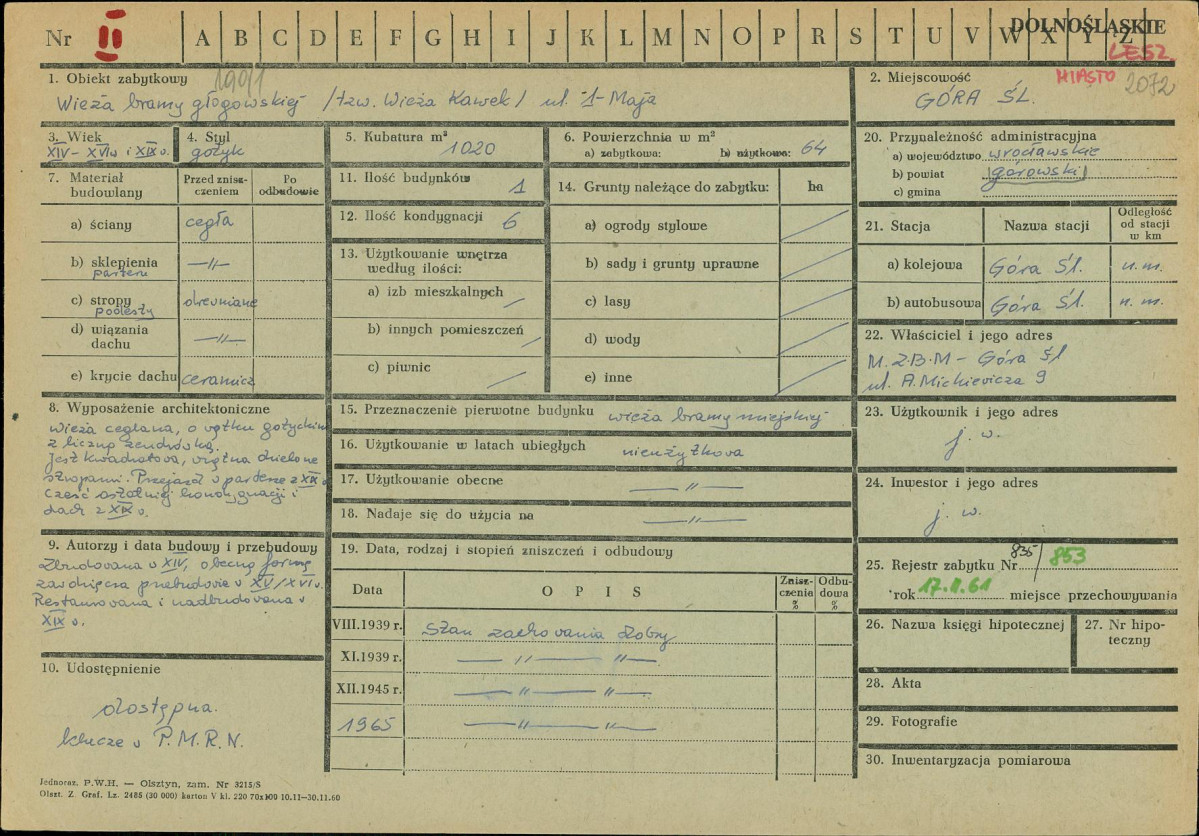 Nr II A B C D E F G H I J K L M N O P R S T U V W X Y Z
DOLNOŚLĄSKIE
LESZ.
MIASTO 2072
1. Obiekt zabytkowy 1991
Wieża bramy głogowskiej /tzw. Wieża Kawek/ ul. 1-Maja
2. Miejscowość
GÓRA ŚL.
3. Wiek
XIV - XVI w i XIX w.
4. Styl
gotyk
5. Kubatura m³
1020
6. Powierzchnia w m²
a) zabytkowa: b) użytkowa: 64
7. Materiał budowlany
Przed zniszczeniem
Po odbudowie
a) ściany cegła
b) sklepienia parteru —〃—
c) stropy podesty drewniane
d) wiązania dachu —〃—
e) krycie dachu ceramicz
8. Wyposażenie architektoniczne
Wieża ceglana, o wątku gotyckim
z liczną zendrówką.
Jest kwadratowa, wnętrze dzielone
stropami. Przejazd w parterze z XIX w
Część ostatniej kondygnacji i
dach z XIX w.
9. Autorzy i data budowy i przebudowy
Zbudowana w XIV, obecną formę
zawdzięcza przebudowie w XV/XVI w.
Restaurowana i nadbudowana w
XIX w.
10. Udostępnienie
dostępna.
klucze w P.M.R.N.
11. Ilość budynków 1
12. Ilość kondygnacji 6
13. Użytkowanie wnętrza
według ilości:
a) izb mieszkalnych
b) innych pomieszczeń
c) piwnic
14. Grunty należące do zabytku: ha
a) ogrody stylowe
b) sady i grunty uprawne
c) lasy
d) wody
e) inne
15. Przeznaczenie pierwotne budynku wieża bramy miejskiej
16. Użytkowanie w latach ubiegłych nieużytkowa
17. Użytkowanie obecne —〃—
18. Nadaje się do użycia na —〃—
19. Data, rodzaj i stopień zniszczeń i odbudowy
Data OPIS Zniszczenia % Odbudowa %
VIII.1939 r. Stan zachowania dobry
XI.1939 r. —〃— 〃—
XII.1945 r. —〃— 〃—
1965 —〃— 〃—
20. Przynależność administracyjna
a) województwo wrocławskie
b) powiat górowski
c) gmina
21. Stacja Nazwa stacji Odległość od stacji w km
a) kolejowa Góra Śl. n. m.
b) autobusowa Góra Śl. n. m.
22. Właściciel i jego adres
M.Z.B.M - Góra Śl
ul. A. Mickiewicza 9
23. Użytkownik i jego adres
j. w.
24. Inwestor i jego adres
j. w.
25. Rejestr zabytku Nr 835/853
rok 17.II.61 miejsce przechowywania
26. Nazwa księgi hipotecznej
27. Nr hipoteczny
28. Akta
29. Fotografie
30. Inwentaryzacja pomiarowa
Jednoraz. P.W.H. — Olsztyn, zam. Nr 3215/S
Olszt. Z. Graf. Lz. 2485 (30 000) karton V kl. 220 70x100 10.11—30.11.60